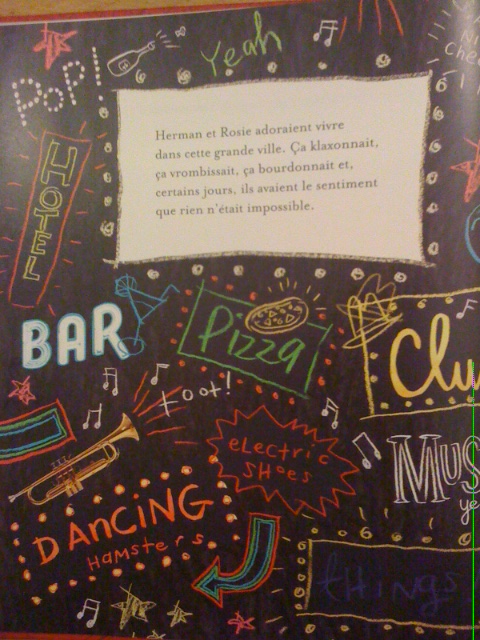 Pop!
Yeah
Herman et Rosie adoraient vivre
dans cette grande ville. Ça klaxonnait,
ça vrombissait, ça bourdonnait et,
certains jours, ils avaient le sentiment
que rien n'était impossible.
HOTEL
BAR
Pizza
Clu
toot!
electric
SHoes
Mus
ye
DANCING
Hamsters
tHiNgs